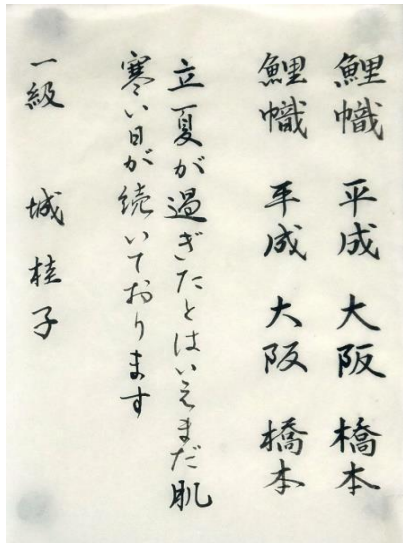 鯉幟 平成 大阪 橋本
鯉幟 平成 大阪 橋本
立夏が過ぎたとはいえまだ肌
寒い日が続いております
一級 城桂子